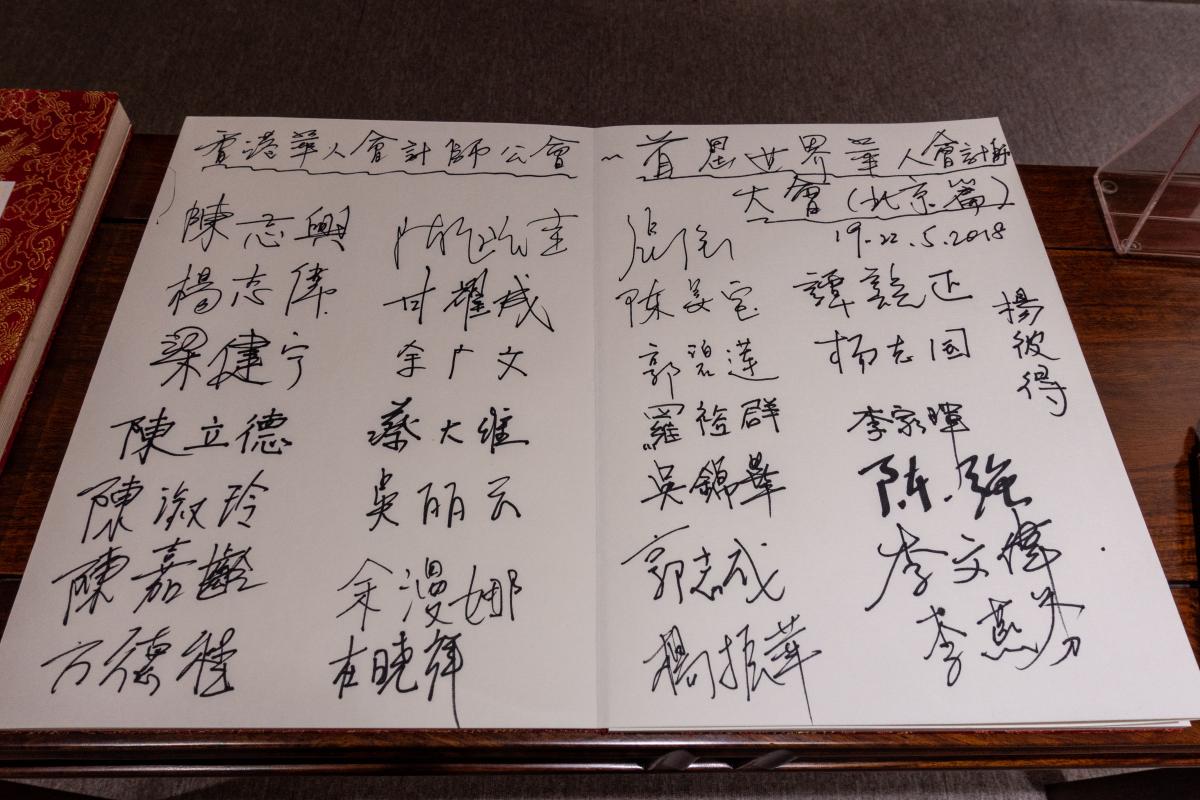 香港華人會計師公會
~ 首屆世界華人會計師
大會（北京篇）
19-22.5.2018
陳志興
楊志偉 甘耀成
梁健宁 余广文
陳立德 蔡大維
陳淑玲 吳丽云
陳嘉齡 余漫娜
方德程 在晓祥
陈美宝 譚競正
郭碧蓮 杨志国
羅裕群 李家暉
吳錦華 陈强
郭志成 李文偉
楊振華 李燕芬
楊彼得